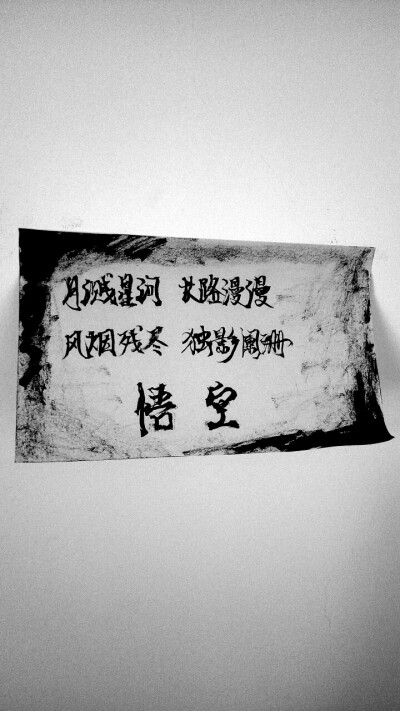 月溅星河 长路漫漫
风烟残尽 独影阑珊
悟空